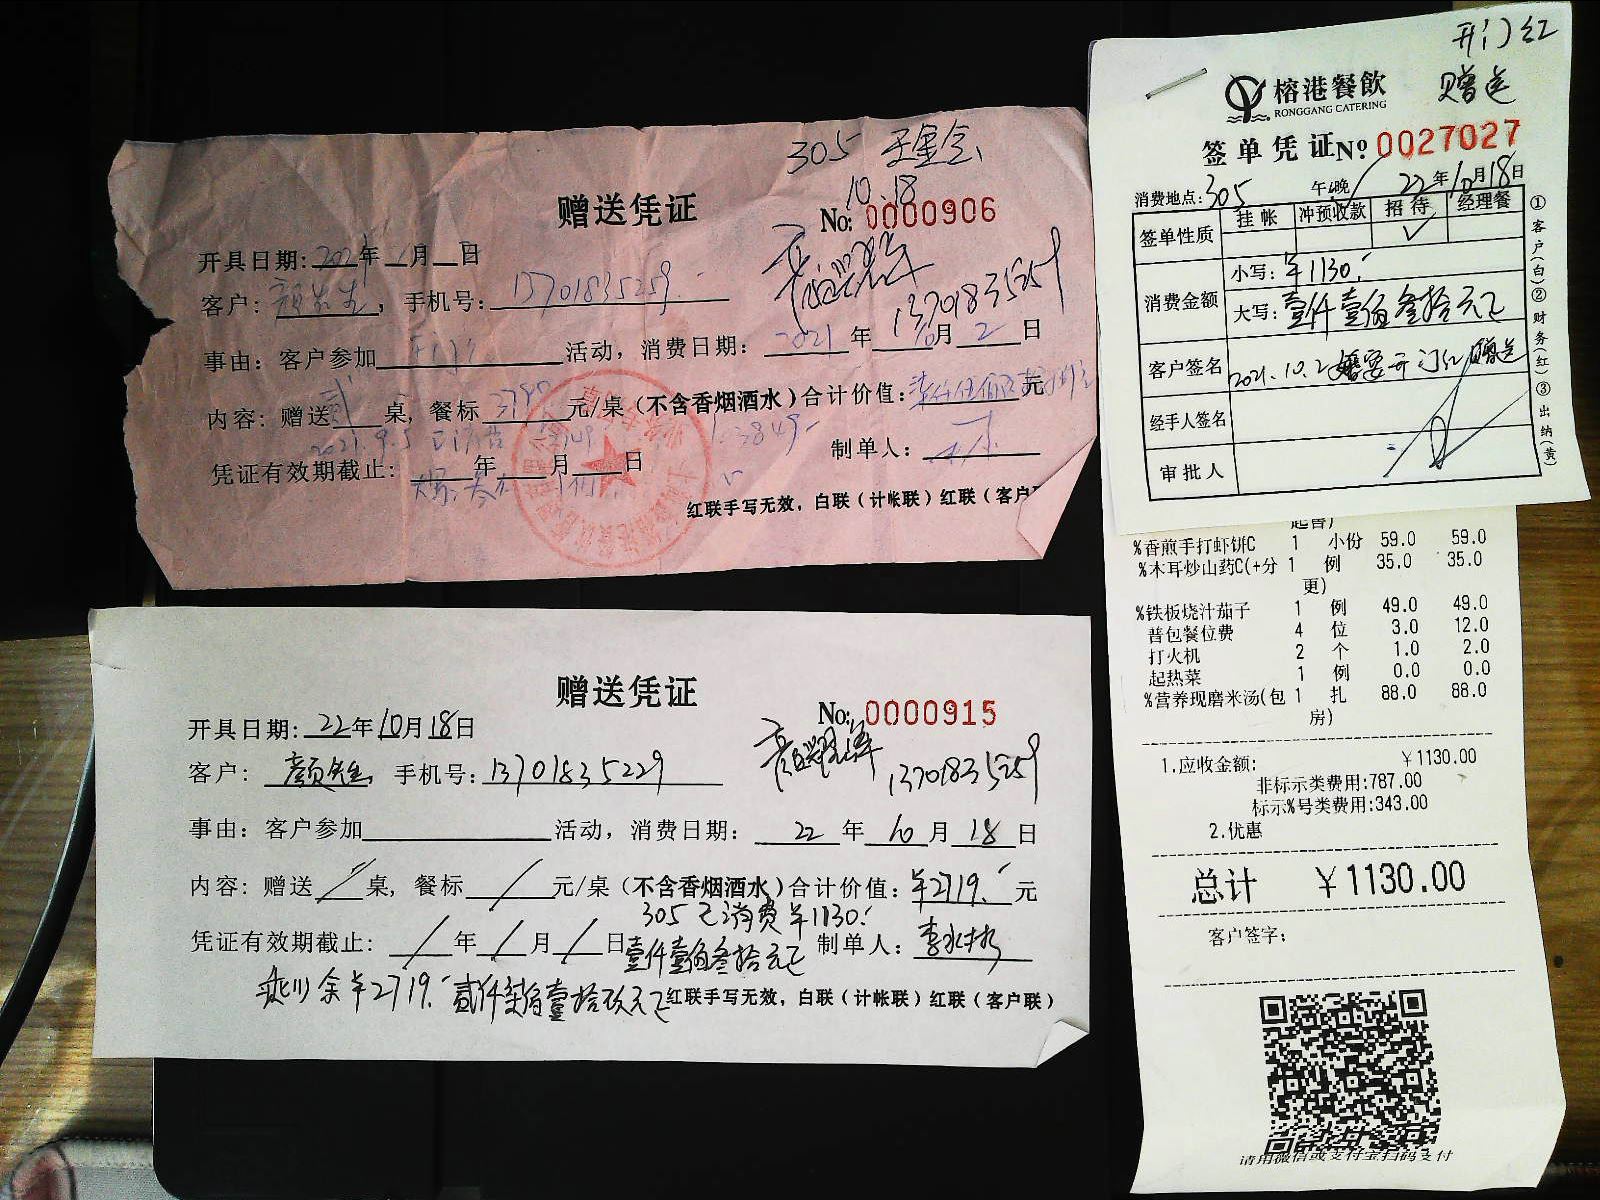 305
10.18
赠送凭证
No: 0000906
开具日期: 2021年 月 日
客户: 颜先生, 手机号: 13701835259
13701835259
事由: 客户参加 开门红 活动, 消费日期: 2021 年 10 月 2 日
内容: 赠送 贰 桌, 餐标 元/桌 (不含香烟酒水) 合计价值: 元
2021.9.5 3849-
凭证有效期截止: 年 月 日
制单人:
红联手写无效, 白联 (计帐联) 红联 (客户
赠送凭证
No: 0000915
开具日期: 22年10月18日
13701835259
客户: 颜先生 手机号: 13701835229
事由: 客户参加 活动, 消费日期: 22 年 10 月 18 日
内容: 赠送 / 桌, 餐标 / 元/桌 (不含香烟酒水) 合计价值: ¥2719. 元
305 已消费 ¥1130.
凭证有效期截止: / 年 / 月 / 日 壹仟壹佰叁拾元正 制单人:
剩余¥2719. 贰仟柒佰壹拾玖元正 红联手写无效, 白联 (计帐联) 红联 (客户联)
开门红
赠送
榕港餐飲
RONGGANG CATERING
签单凭证 No 0027027
消费地点: 305 午/晚 22年10月18日
签单性质 挂帐 冲预收款 招待 经理餐
✓
消费金额 小写: ¥1130.
大写: 壹仟壹佰叁拾元正
客户签名 2021.10.2 婚宴开门红赠送
经手人签名
审批人
①客户(白)②财务(红)③出纳(黄)
%香煎手打虾饼C 1 小份 59.0 59.0
%木耳炒山药C(+分 1 例 35.0 35.0
更)
%铁板烧汁茄子 1 例 49.0 49.0
普包餐位费 4 位 3.0 12.0
打火机 2 个 1.0 2.0
起热菜 1 例 0.0 0.0
%营养现磨米汤(包 1 扎 88.0 88.0
房)
1.应收金额: ¥1130.00
非标示类费用:787.00
标示%号类费用:343.00
2.优惠
总计 ¥1130.00
客户签字:
请用微信或支付宝扫码支付